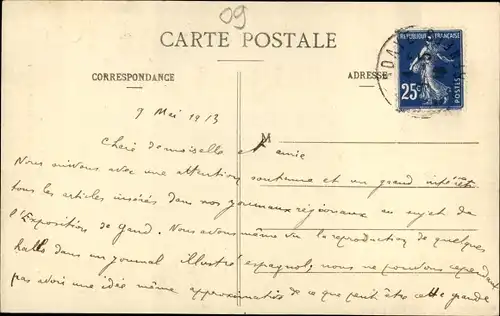 09
CARTE POSTALE
CORRESPONDANCE
ADRESSE
REPUBLIQUE FRANÇAISE
25c
POSTES
DAX
9 Mai 1913
M
Chère demoiselle et amie
Nous suivons avec une attention soutenue et un grand intérêt
tous les articles insérés dans nos journaux régionaux au sujet de
l'Exposition de Gand. Nous avons même vu la reproduction de quelques
halls dans un journal illustré espagnol, nous ne pouvons cependant
pas avoir une idée même approximative de ce que peut être cette grande